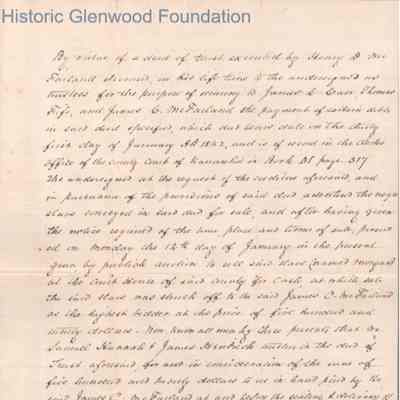 Historic Glenwood Foundation
By virtue of a deed of trust executed by Henry D Mc
Farland deceased, in his life time to the undersigned as
trustees for the purpose of securing to James C. Thomas
Fife, and James C. McFarland the payment of certain debts
in said deed specified, which deed bears date on the thirty
first day of January AD 1842, and is of record in the Clerks
office of the county court of Kanawha in Book page 317
The undersigned at the request of the creditors aforesaid, and
in pursuance of the provisions of said deed advertised the negro
slaves conveyed in said deed for sale, and after having given
the notice required of the time place and terms of sale, proceed
ed on Monday the 12th day of January in the present
year by publick auction to sell said slave (named Margaret
at the Court House of said County for Cash, at which sale
the said slave was struck off to the said James C. McFarland
as the highest bidder at the price of five hundred and
ninety dollars. Now know all men by these presents that we
Samuel Hannah & James Hendrick trustees in the deed of
Trust aforesaid for and in consideration of the sum of
five hundred and ninety dollars to us in hand paid by the
said James C. McFarland at and before the sealing & delivery of